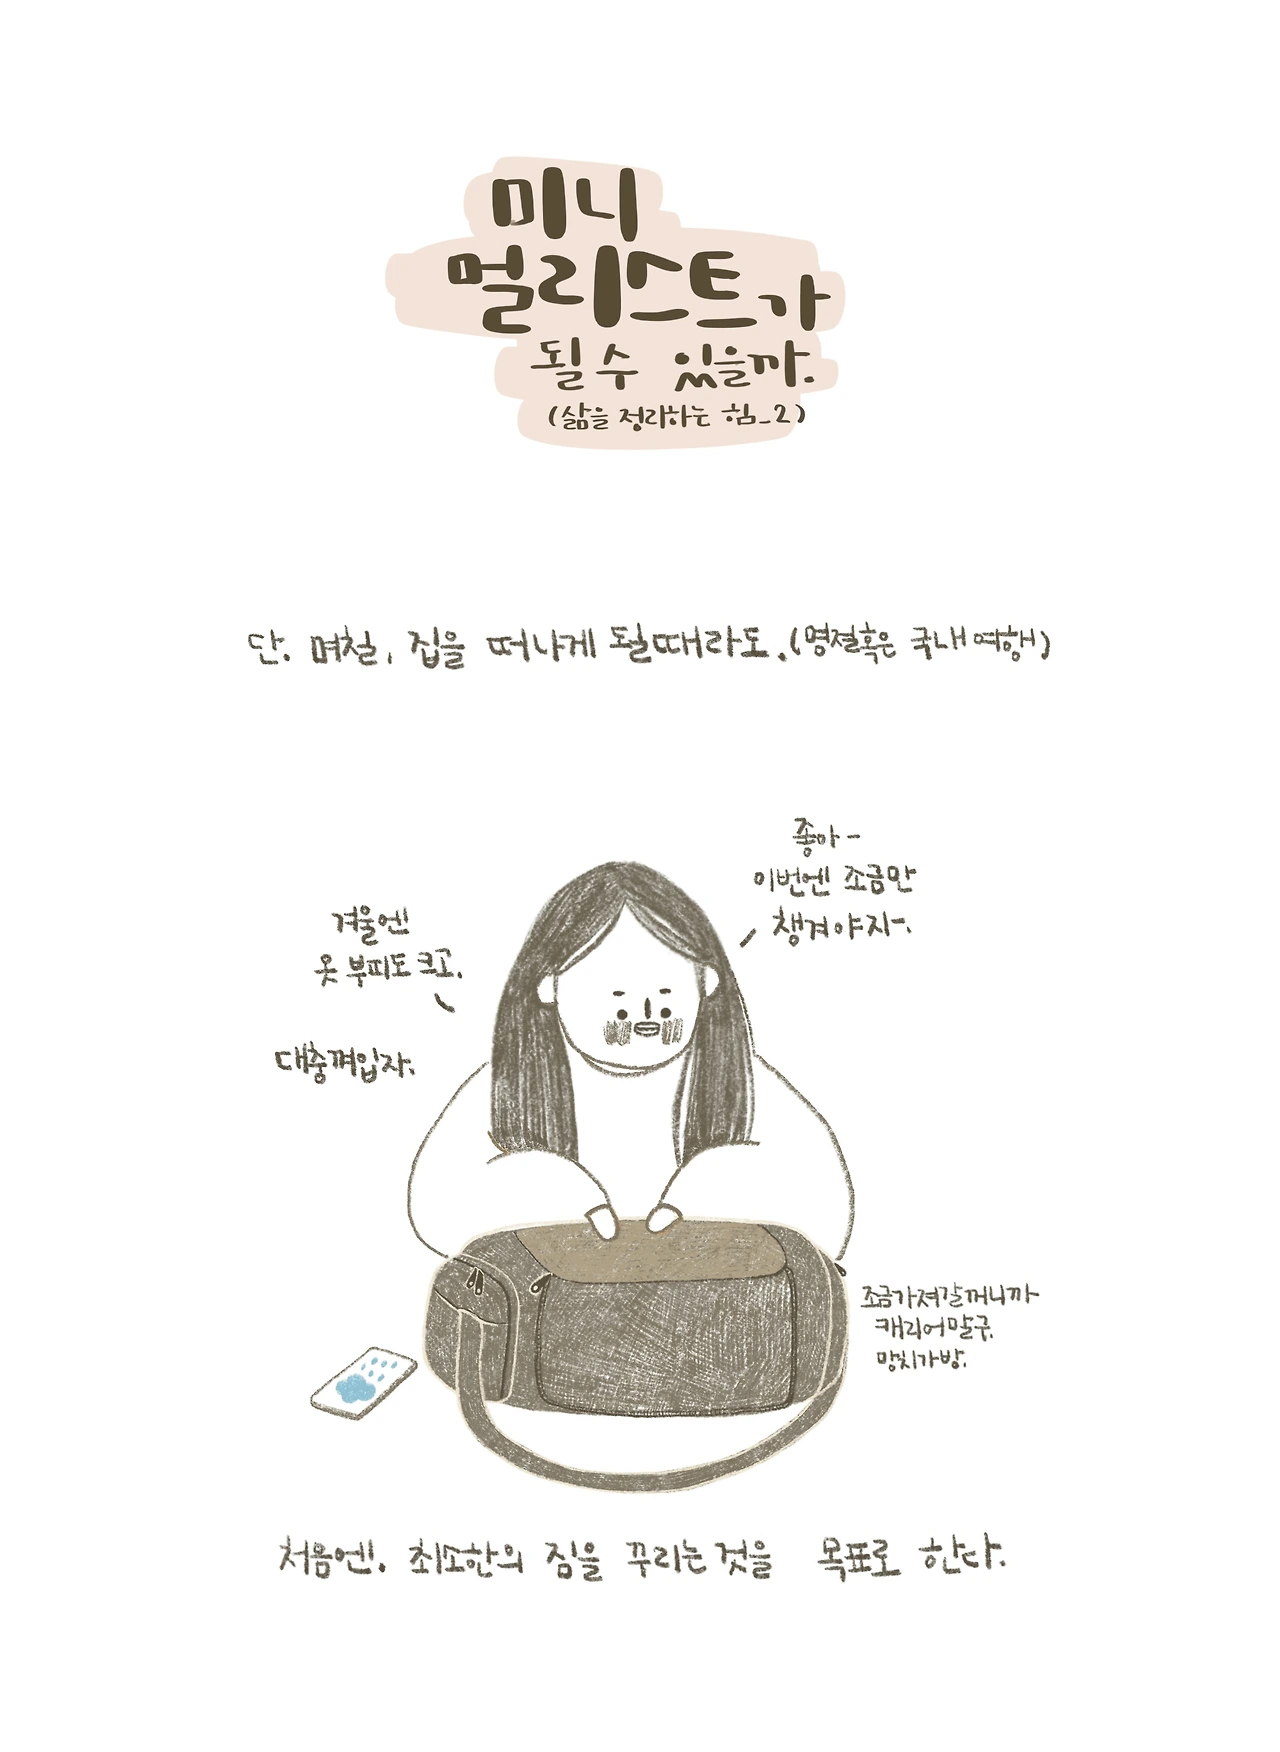 미니
멀리스트가
될 수 있을까.
(삶을 정리하는 힘_2)
단. 며칠, 집을 떠나게 될때라도.(명절혹은 국내여행)
좋아-
이번엔 조금만
챙겨야지-.
겨울엔
옷 부피도 크고.
대충껴입자.
조금가져갈꺼니까
캐리어말구.
망치가방.
처음엔. 최소한의 짐을 꾸리는것을 목표로 한다.